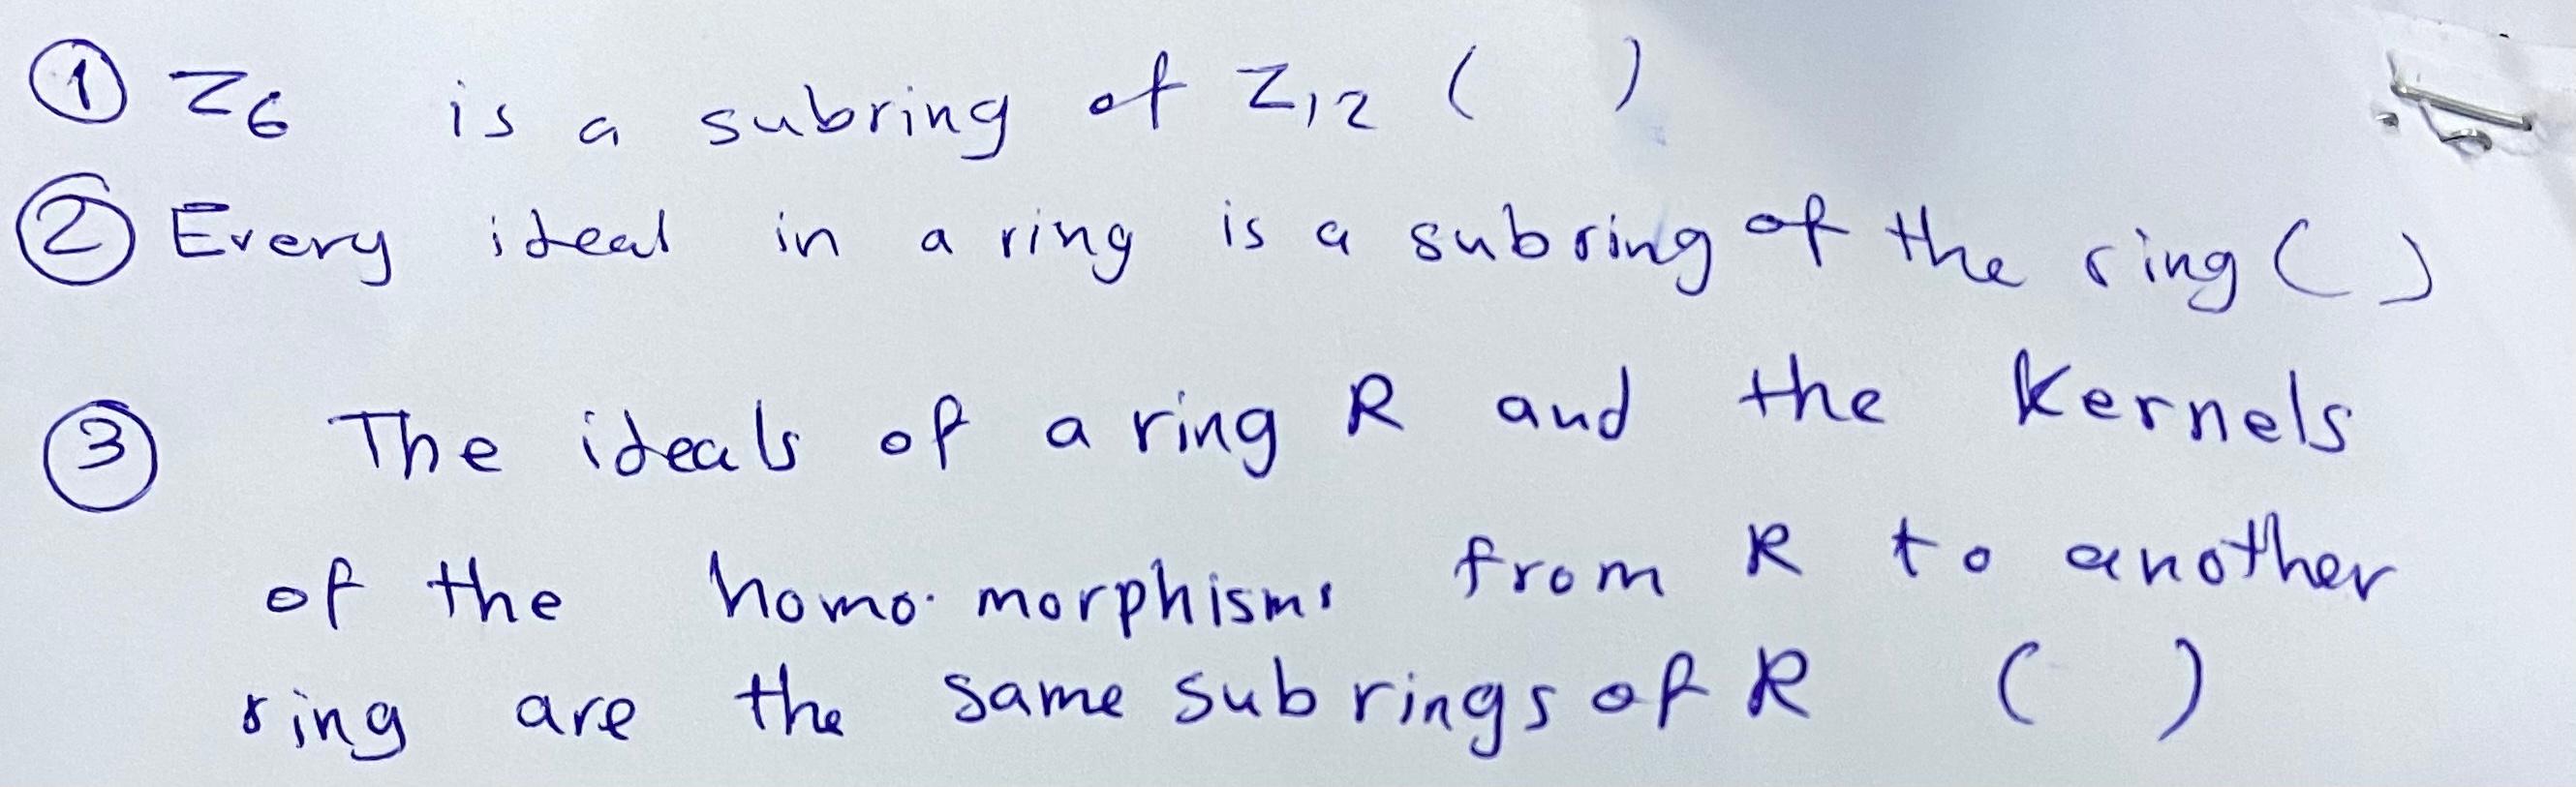 ① Z6 is a subring of Z12 ( )
② Every ideal in a ring is a subring of the ring ( )
③ The ideals of a ring R and the Kernels
of the homo.morphisms from R to another
ring are the same subrings of R ( )